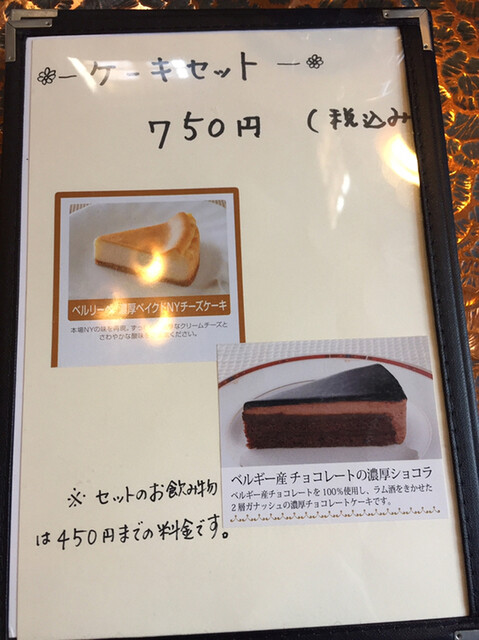 ケーキセット
750円 (税込み
ベルリーの濃厚ベイクドNYチーズケーキ
本場NYの味を再現。 なクリームチーズと
さわやかな酸味 ください。
ベルギー産チョコレートの濃厚ショコラ
ベルギー産チョコレートを100%使用し、ラム酒をきかせた
2層ガナッシュの濃厚チョコレートケーキです。
※ セットのお飲み物
は450円までの料金です。